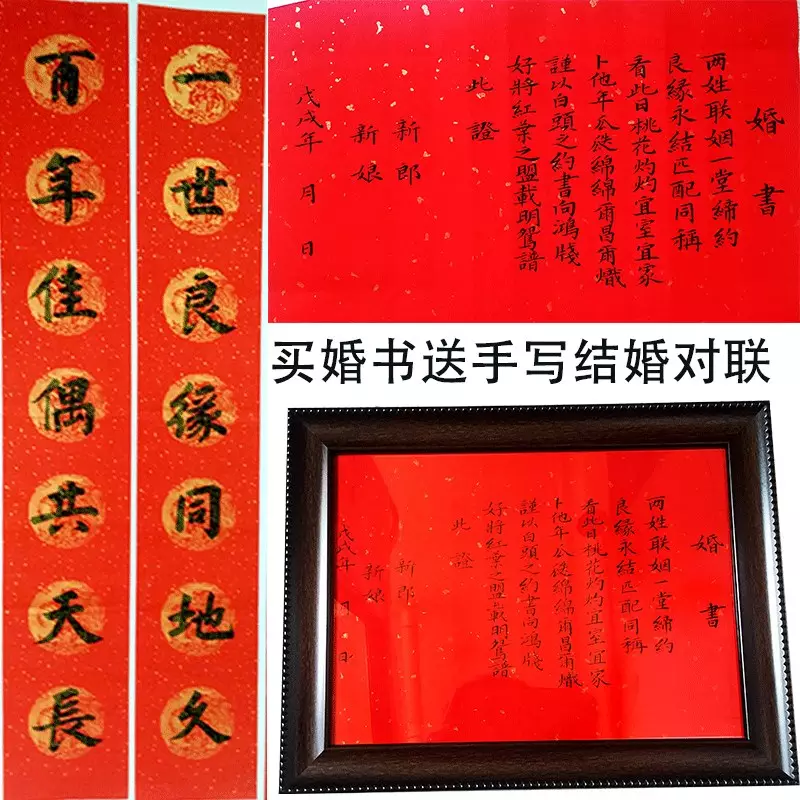 一世良缘同地久
百年佳偶共天長
婚書
两姓联姻一堂締约
良緣永结匹配同稱
看此日桃花灼灼宜室宜家
卜他年瓜瓞綿綿爾昌爾熾
謹以白頭之约書向鴻牋
好將紅葉之盟載明鴛譜
此證
新郎
新娘
戊戌年 月 日
买婚书送手写结婚对联
婚書
两姓联姻一堂締约
良緣永结匹配同稱
看此日桃花灼灼宜室宜家
卜他年瓜瓞綿綿爾昌爾熾
謹以白頭之约書向鴻牋
好將紅葉之盟載明鴛譜
此證
新郎
新娘
戊戌年 月 日